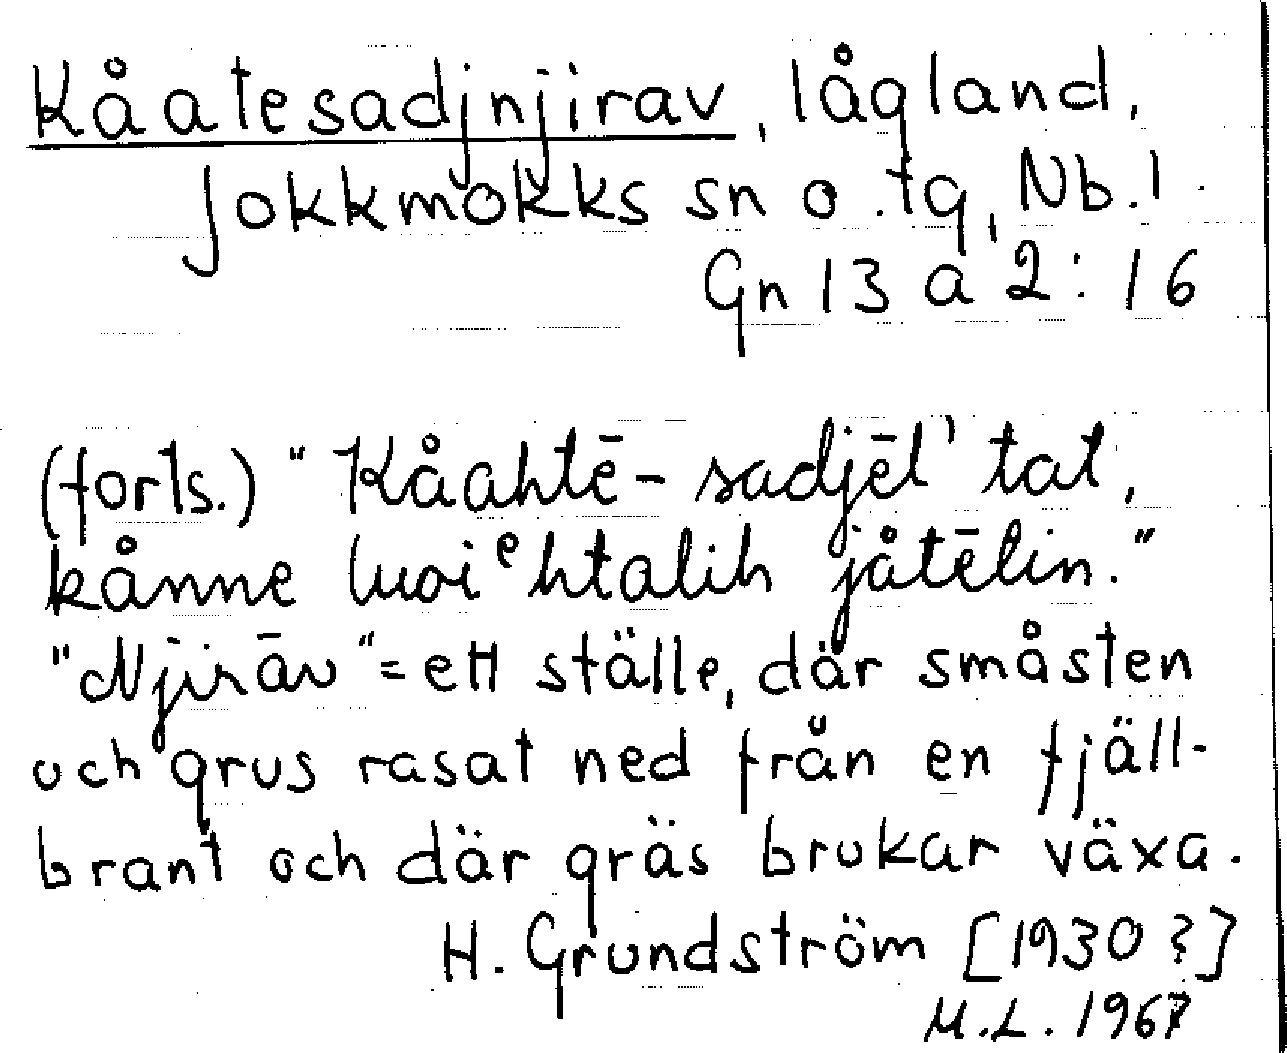 Kåatesadjnjirav, lågland,
Jokkmokks sn o. tg, Nb.l.
Gn 13 a 2:16
(forts.) "Kåahtē-sadjēl' tat,
kånne luoiᵉhtalih jåtēlin."
"Njirāv"= ett ställe, där småsten
och grus rasat ned från en fjäll-
brant och där gräs brukar växa.
H. Grundström [1930?]
M.L. 1967